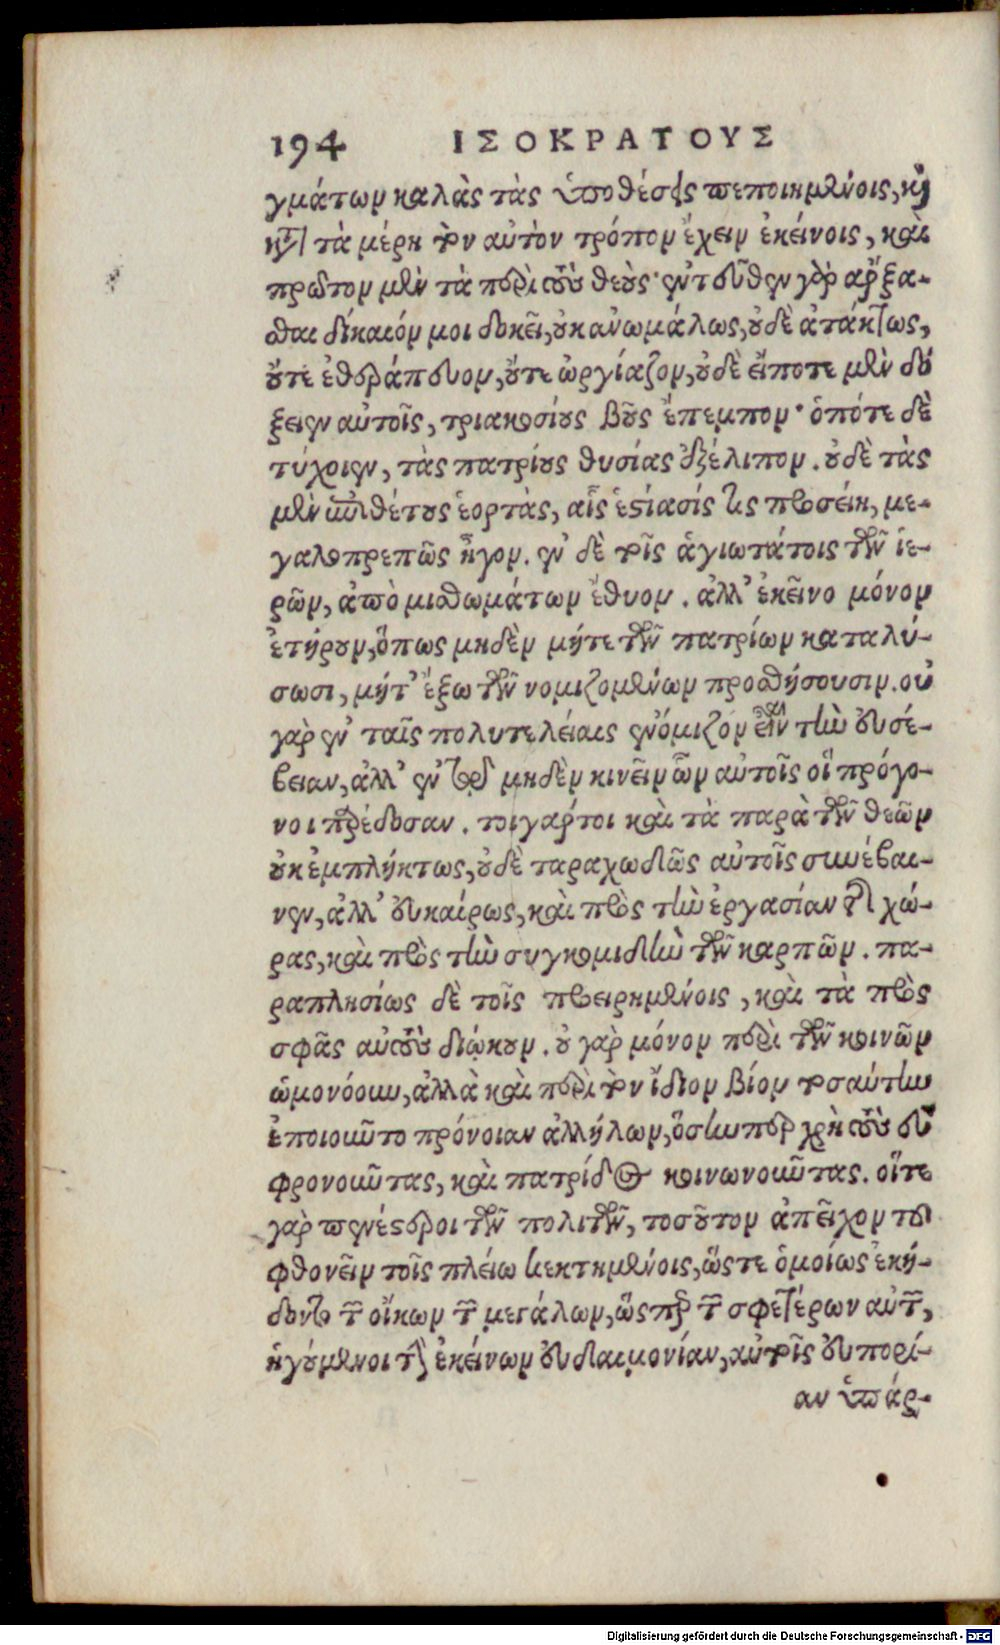 194 ΙΣΟΚΡΑΤΟΥΣ
γμάτων καλὰς τὰς ὑποθέσεις πεποιημένοις, καὶ
κατὰ τὰ μέρη τὸν αὐτὸν τρόπον ἔχειν ἐκείνοις, καὶ
πρῶτον μὲν τὰ περὶ τοὺς θεούς· ἐντεῦθεν γὰρ ἄρξα-
σθαι δίκαιόν μοι δοκεῖ, οὐκ ἀνωμάλως, οὐδὲ ἀτάκτως,
οὔτε ἐθεράπευον, οὔτε ὠργίαζον, οὐδὲ εἴποτε μὲν δό
ξειεν αὐτοῖς, τριακοσίους βοῦς ἔπεμπον· ὁπότε δὲ
τύχοιεν, τὰς πατρίους θυσίας ἐξέλιπον. οὐδὲ τὰς
μὲν ἐπιθέτους ἑορτὰς, αἷς ἑστίασίς τις προσείη, με-
γαλοπρεπῶς ἦγον. ἐν δὲ τοῖς ἁγιωτάτοις τῶν ἱε-
ρῶν, ἀπὸ μισθωμάτων ἔθυον. ἀλλ' ἐκεῖνο μόνον
ἐτήρουν, ὅπως μηδὲν μήτε τῶν πατρίων καταλύ-
σωσι, μήτ' ἔξω τῶν νομιζομένων προσθήσουσιν. οὐ
γὰρ ἐν ταῖς πολυτελείαις ἐνόμιζον εἶναι τὴν εὐσέ-
βειαν, ἀλλ' ἐν τῷ μηδὲν κινεῖν ὧν αὐτοῖς οἱ πρόγο-
νοι παρέδοσαν. τοιγάρτοι καὶ τὰ παρὰ τῶν θεῶν
οὐκ ἐμπλήκτως, οὐδὲ ταραχωδῶς αὐτοῖς συνέβαι-
νεν, ἀλλ' εὐκαίρως, καὶ πρὸς τὴν ἐργασίαν τῆς χώ-
ρας, καὶ πρὸς τὴν συγκομιδὴν τῶν καρπῶν. πα-
ραπλησίως δὲ τοῖς προειρημένοις, καὶ τὰ πρὸς
σφᾶς αὐτοὺς διῴκουν. οὐ γὰρ μόνον περὶ τῶν κοινῶν
ὡμονόουν, ἀλλὰ καὶ περὶ τὸν ἴδιον βίον τοσαύτην
ἐποιοῦντο πρόνοιαν ἀλλήλων, ὅσην περ χρὴ τοὺς εὖ
φρονοῦντας, καὶ πατρίδος κοινωνοῦντας. οἵτε
γὰρ πενέστεροι τῶν πολιτῶν, τοσοῦτον ἀπεῖχον τοῦ
φθονεῖν τοῖς πλείω κεκτημένοις, ὥστε ὁμοίως ἐκή-
δοντο τῶν οἴκων τῶν μεγάλων, ὥσπερ τῶν σφετέρων αὐτῶν,
ἡγούμενοι τὴν ἐκείνων εὐδαιμονίαν, αὑτοῖς εὐπορί-
αν ὑπάρ-
Digitalisierung gefördert durch die Deutsche Forschungsgemeinschaft - DFG